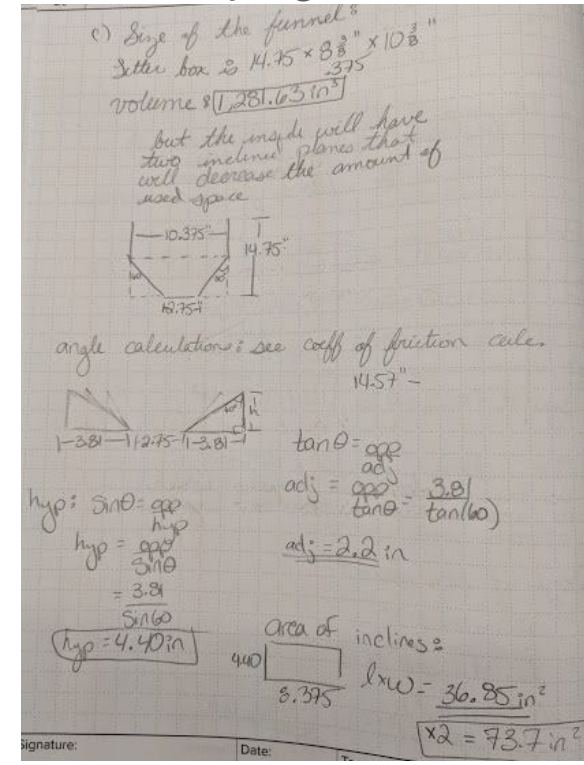 c) Size of the funnel:
Litter box is 14.75 × 8 3/8" × 10 3/8"
.375
volume: 1,281.63 in³
but the inside will have
two incline planes that
will decrease the amount of
used space
10.375"
14.75"
60°
60°
2.75"
angle calculations: see coeff of friction calc.
14.57" -
60°
h
3.81
2.75
3.81
tanθ = opp/adj
adj = opp/tanθ = 3.81/tan(60)
adj = 2.2 in
hyp: sinθ = opp/hyp
hyp = opp/sinθ
= 3.81/sin60
hyp = 4.40in
area of inclines:
4.40
8.375
l×w = 36.85 in²
×2 = 73.7 in²
Signature:
Date: